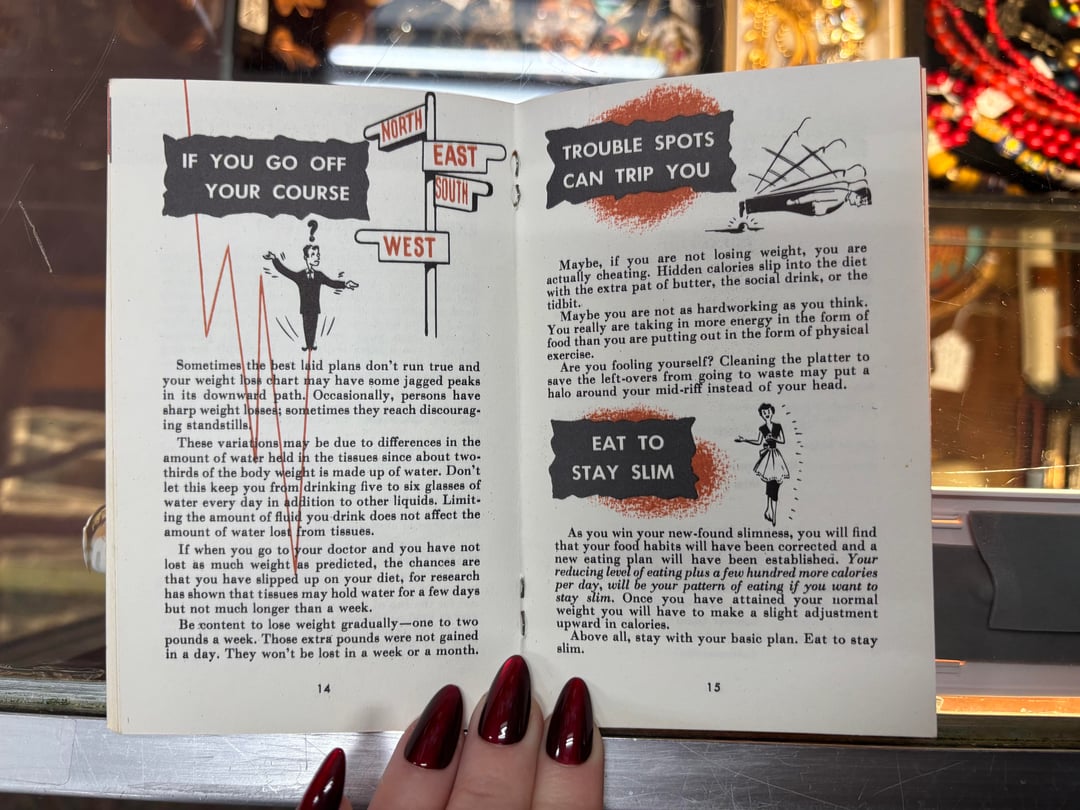 IF YOU GO OFF
YOUR COURSE
NORTH
EAST
SOUTH
WEST
?
Sometimes the best laid plans don't run true and
your weight loss chart may have some jagged peaks
in its downward path. Occasionally, persons have
sharp weight losses; sometimes they reach discourag-
ing standstills.
These variations may be due to differences in the
amount of water held in the tissues since about two-
thirds of the body weight is made up of water. Don't
let this keep you from drinking five to six glasses of
water every day in addition to other liquids. Limit-
ing the amount of fluid you drink does not affect the
amount of water lost from tissues.
If when you go to your doctor and you have not
lost as much weight as predicted, the chances are
that you have slipped up on your diet, for research
has shown that tissues may hold water for a few days
but not much longer than a week.
Be content to lose weight gradually—one to two
pounds a week. Those extra pounds were not gained
in a day. They won't be lost in a week or a month.
14
TROUBLE SPOTS
CAN TRIP YOU
Maybe, if you are not losing weight, you are
actually cheating. Hidden calories slip into the diet
with the extra pat of butter, the social drink, or the
tidbit.
Maybe you are not as hardworking as you think.
You really are taking in more energy in the form of
food than you are putting out in the form of physical
exercise.
Are you fooling yourself? Cleaning the platter to
save the left-overs from going to waste may put a
halo around your mid-riff instead of your head.
EAT TO
STAY SLIM
As you win your new-found slimness, you will find
that your food habits will have been corrected and a
new eating plan will have been established. Your
reducing level of eating plus a few hundred more calories
per day, will be your pattern of eating if you want to
stay slim. Once you have attained your normal
weight you will have to make a slight adjustment
upward in calories.
Above all, stay with your basic plan. Eat to stay
slim.
15